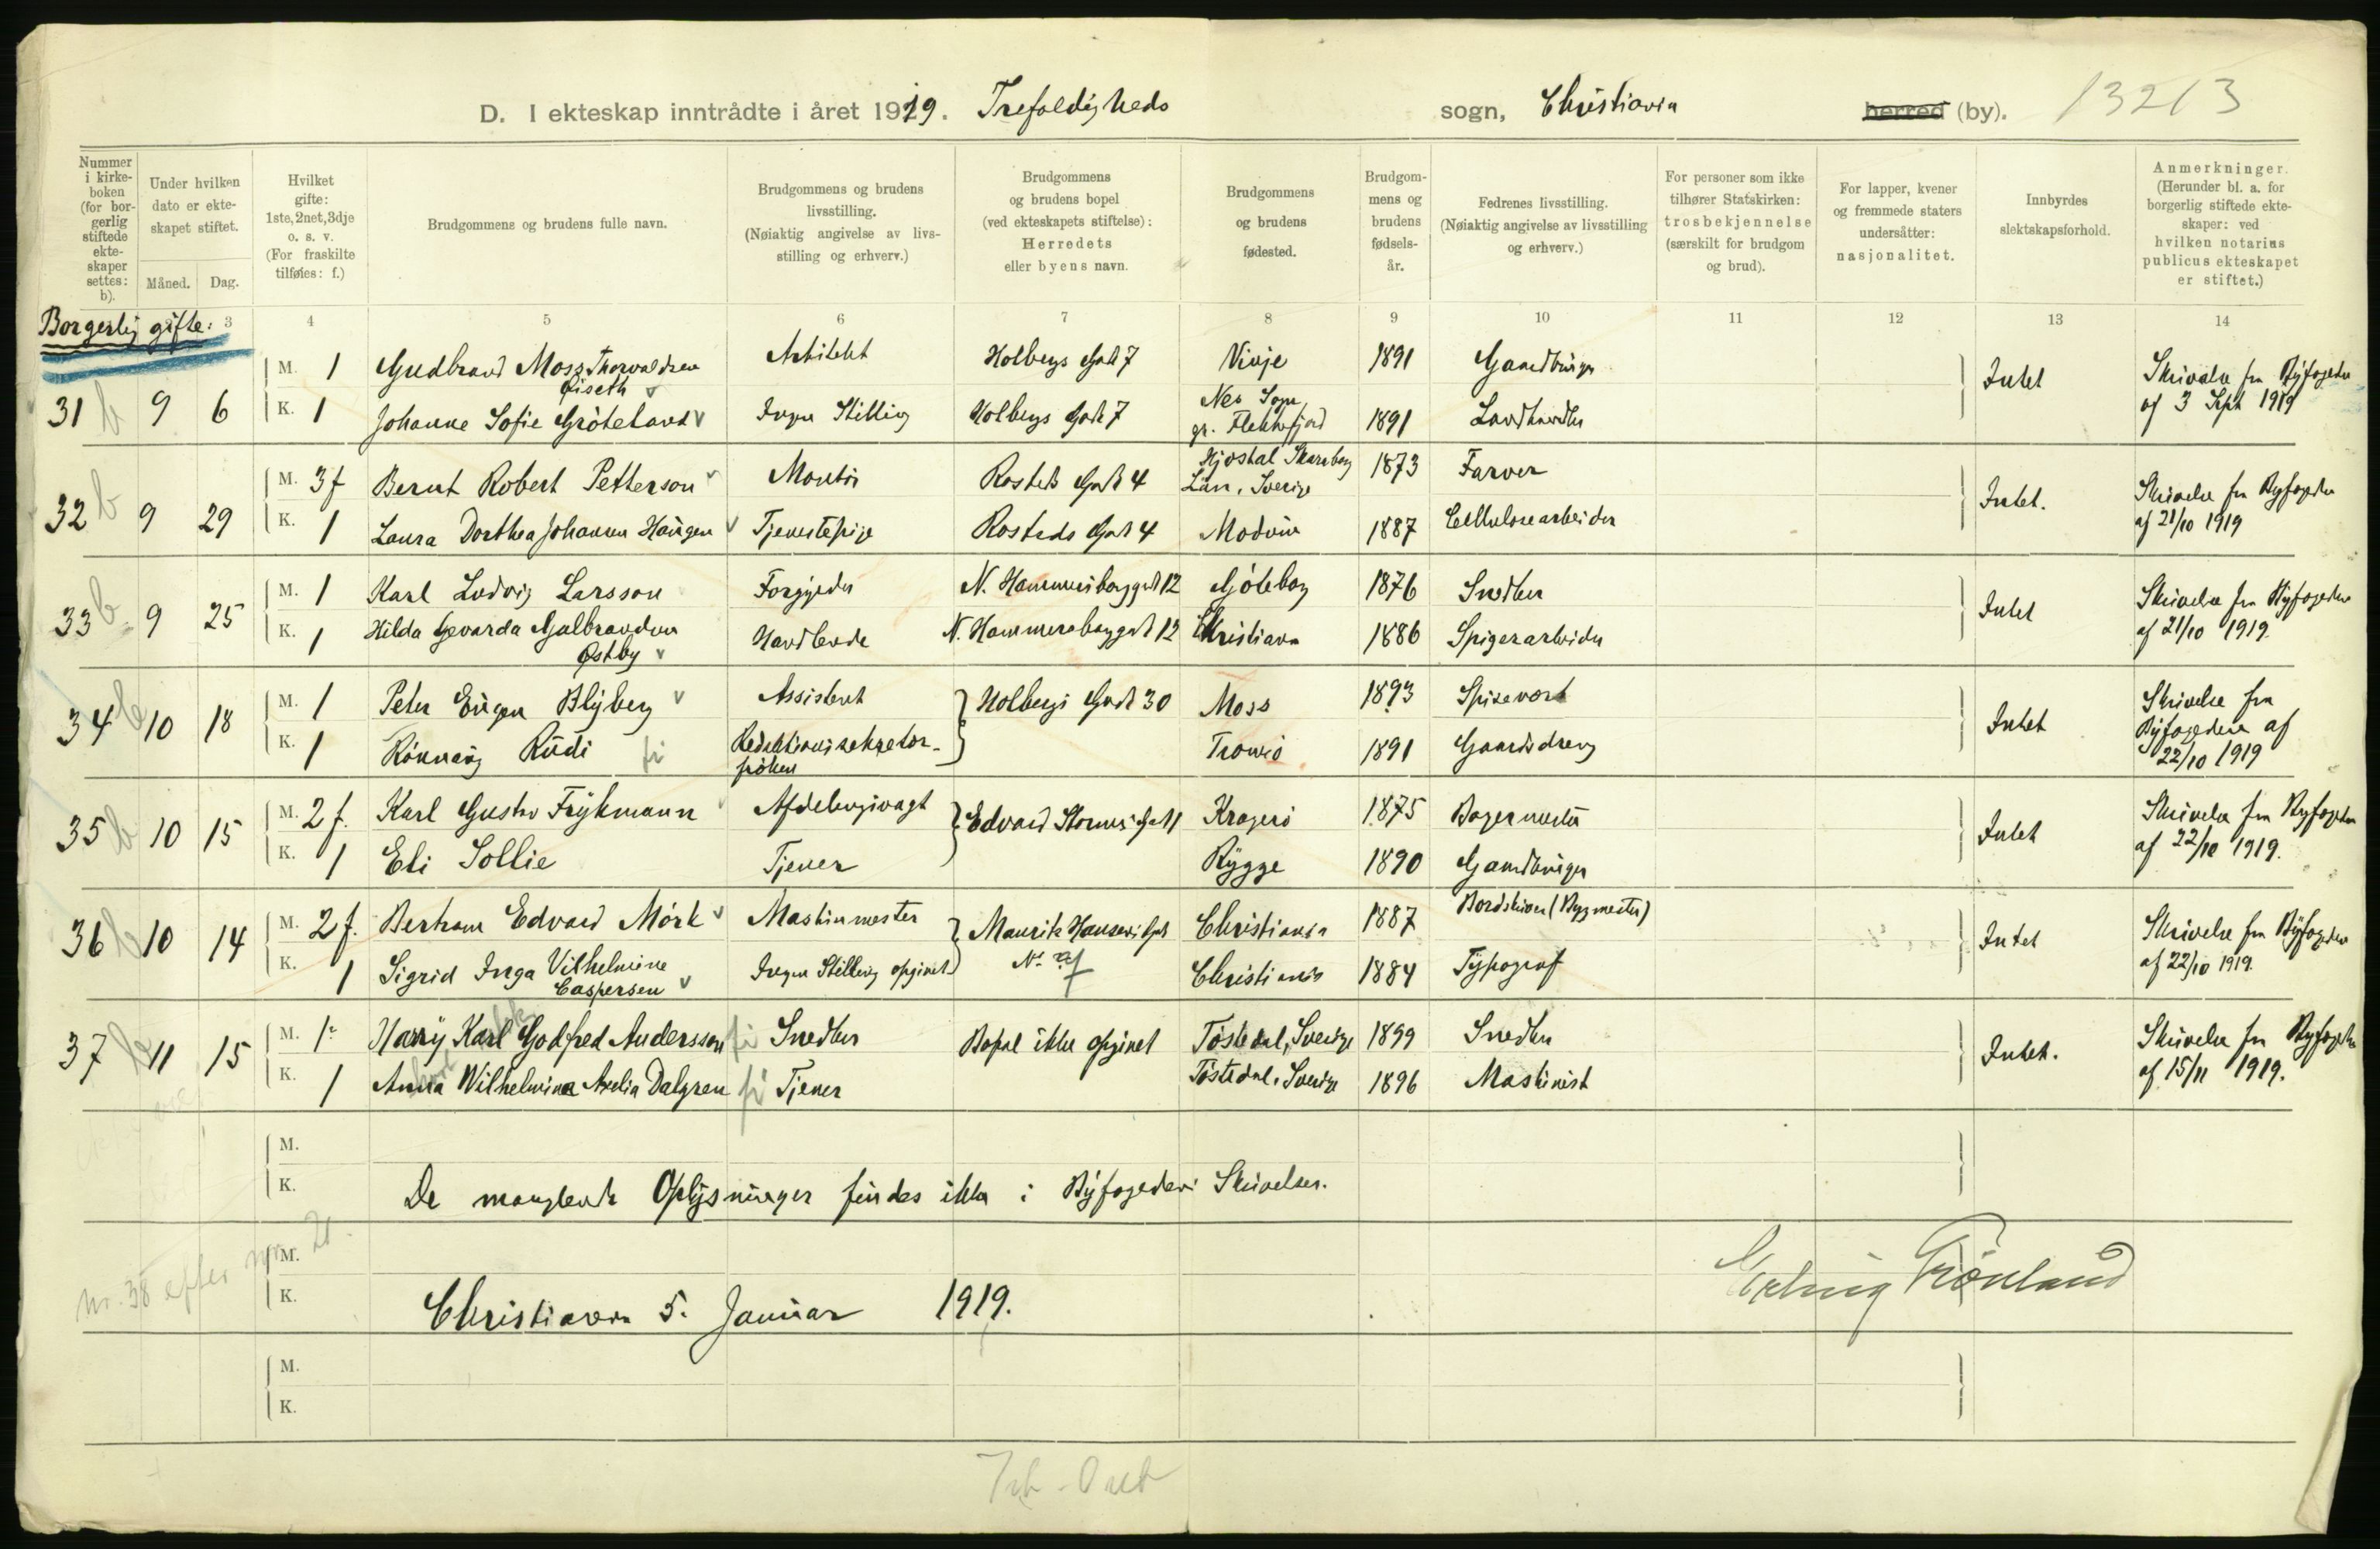 D. I ekteskap inntrådte i året 1919. Trefoldigheds sogn, Christiania herred (by). 13213
Nummer i kirkeboken (for borgerlig stiftede ekteskaper settes: b).
Under hvilken dato er ekteskapet stiftet.
Måned. Dag.
Hvilket gifte: 1ste, 2net, 3dje o. s. v. (For fraskilte tilføies: f.)
Brudgommens og brudens fulle navn.
Brudgommens og brudens livsstilling. (Nøiaktig angivelse av livsstilling og erhverv.)
Brudgommens og brudens bopel (ved ekteskapets stiftelse): Herredets eller byens navn.
Brudgommens og brudens fødested.
Brudgommens og brudens fødselsår.
Fedrenes livsstilling. (Nøiaktig angivelse av livsstilling og erhverv.)
For personer som ikke tilhører Statskirken: trosbekjennelse (særskilt for brudgom og brud).
For lapper, kvener og fremmede staters undersåtter: nasjonalitet.
Innbyrdes slektskapsforhold.
Anmerkninger. (Herunder bl. a. for borgerlig stiftede ekteskaper: ved hvilken notarius publicus ekteskapet er stiftet.)
Borgerlig gifte: 3 4 5 6 7 8 9 10 11 12 13 14
31 b 9 6
M. 1 Gudbrand Moss Thorvaldsen Øiseth Arkitekt Holbergs Gade 7 Vinje 1891 Gaardbruger
K. 1 Johanne Sofie Gröteland Ingen Stilling Holbergs Gade 7 Nes Sogn, pr. Flekkefjord 1891 Landhandler
Intet Skrivelse fra Byfogeden af 3 Sept 1919
32 b 9 29
M. 3 f Bernt Robert Petterson Montör Rosteds Gade 4 Län, Sverige 1873 Farver
K. 1 Laura Dorthea Johansen Haugen Tjenestepige Rosteds Gade 4 Modum 1887 Cellulosearbeider
Intet. Skrivelse fra Byfogeden af 21/10 1919
33 b 9 25
M. 1 Karl Ludvig Larsson Forgyder N. Hammersborggade 12 Göteborg 1876 Snedker
K. 1 Hilda Gevarda Gulbrandsen Østby Handlende N. Hammersborggade 12 Christiania 1886 Spigerarbeider
Intet Skrivelse fra Byfogeden af 21/10 1919.
34 b 10 18
M. 1 Peter Eugen Blyberg Assistent Holbergs Gade 30 Moss 1893 Spisevært
K. 1 Rönnaug Rudi Redaktionssekretær- fröken Tromsö 1891 Gaardsdreng
Intet Skrivelse fra Byfogeden af 22/10 1919
35 b 10 15
M. 2 f. Karl Gustav Frykmann Afdelingsvagt Edvard Storms Gade 1 Kragerö 1875 Bagermester
K. 1 Eli Sollie Tjener Rygge 1890 Gaardbruger
Intet Skrivelse fra Byfogeden af 22/10 1919.
36 b 10 14
M. 2 f. Bertram Edvard Mörk Maskinmester Maurits Hansens Gade Christiania 1887 Bordskriver (Bygmester)
K. 1 Sigrid Inga Vilhelmine Caspersen Ingen Stilling opgivet Christiania 1884 Typograf
Intet Skrivelse fra Byfogeden af 22/10 1919.
37 b 11 15
M. 1 Harry Karl Godfred Andersson Snedker Bopæl ikke opgivet Töstedal, Sverige 1899 Snedker
K. 1 Anna Wilhelmina Axelia Dalgren Tjener Töstedal, Sverige 1896 Maskinist
Intet. Skrivelse fra Byfogeden af 15/11 1919.
M.
K. De manglende Oplysninger findes ikke i Byfogedens Skrivelser.
nr. 38 efter nr. 21.
M.
K. Christiania 5. Januar 1919. Erling Grönland
M.
K.